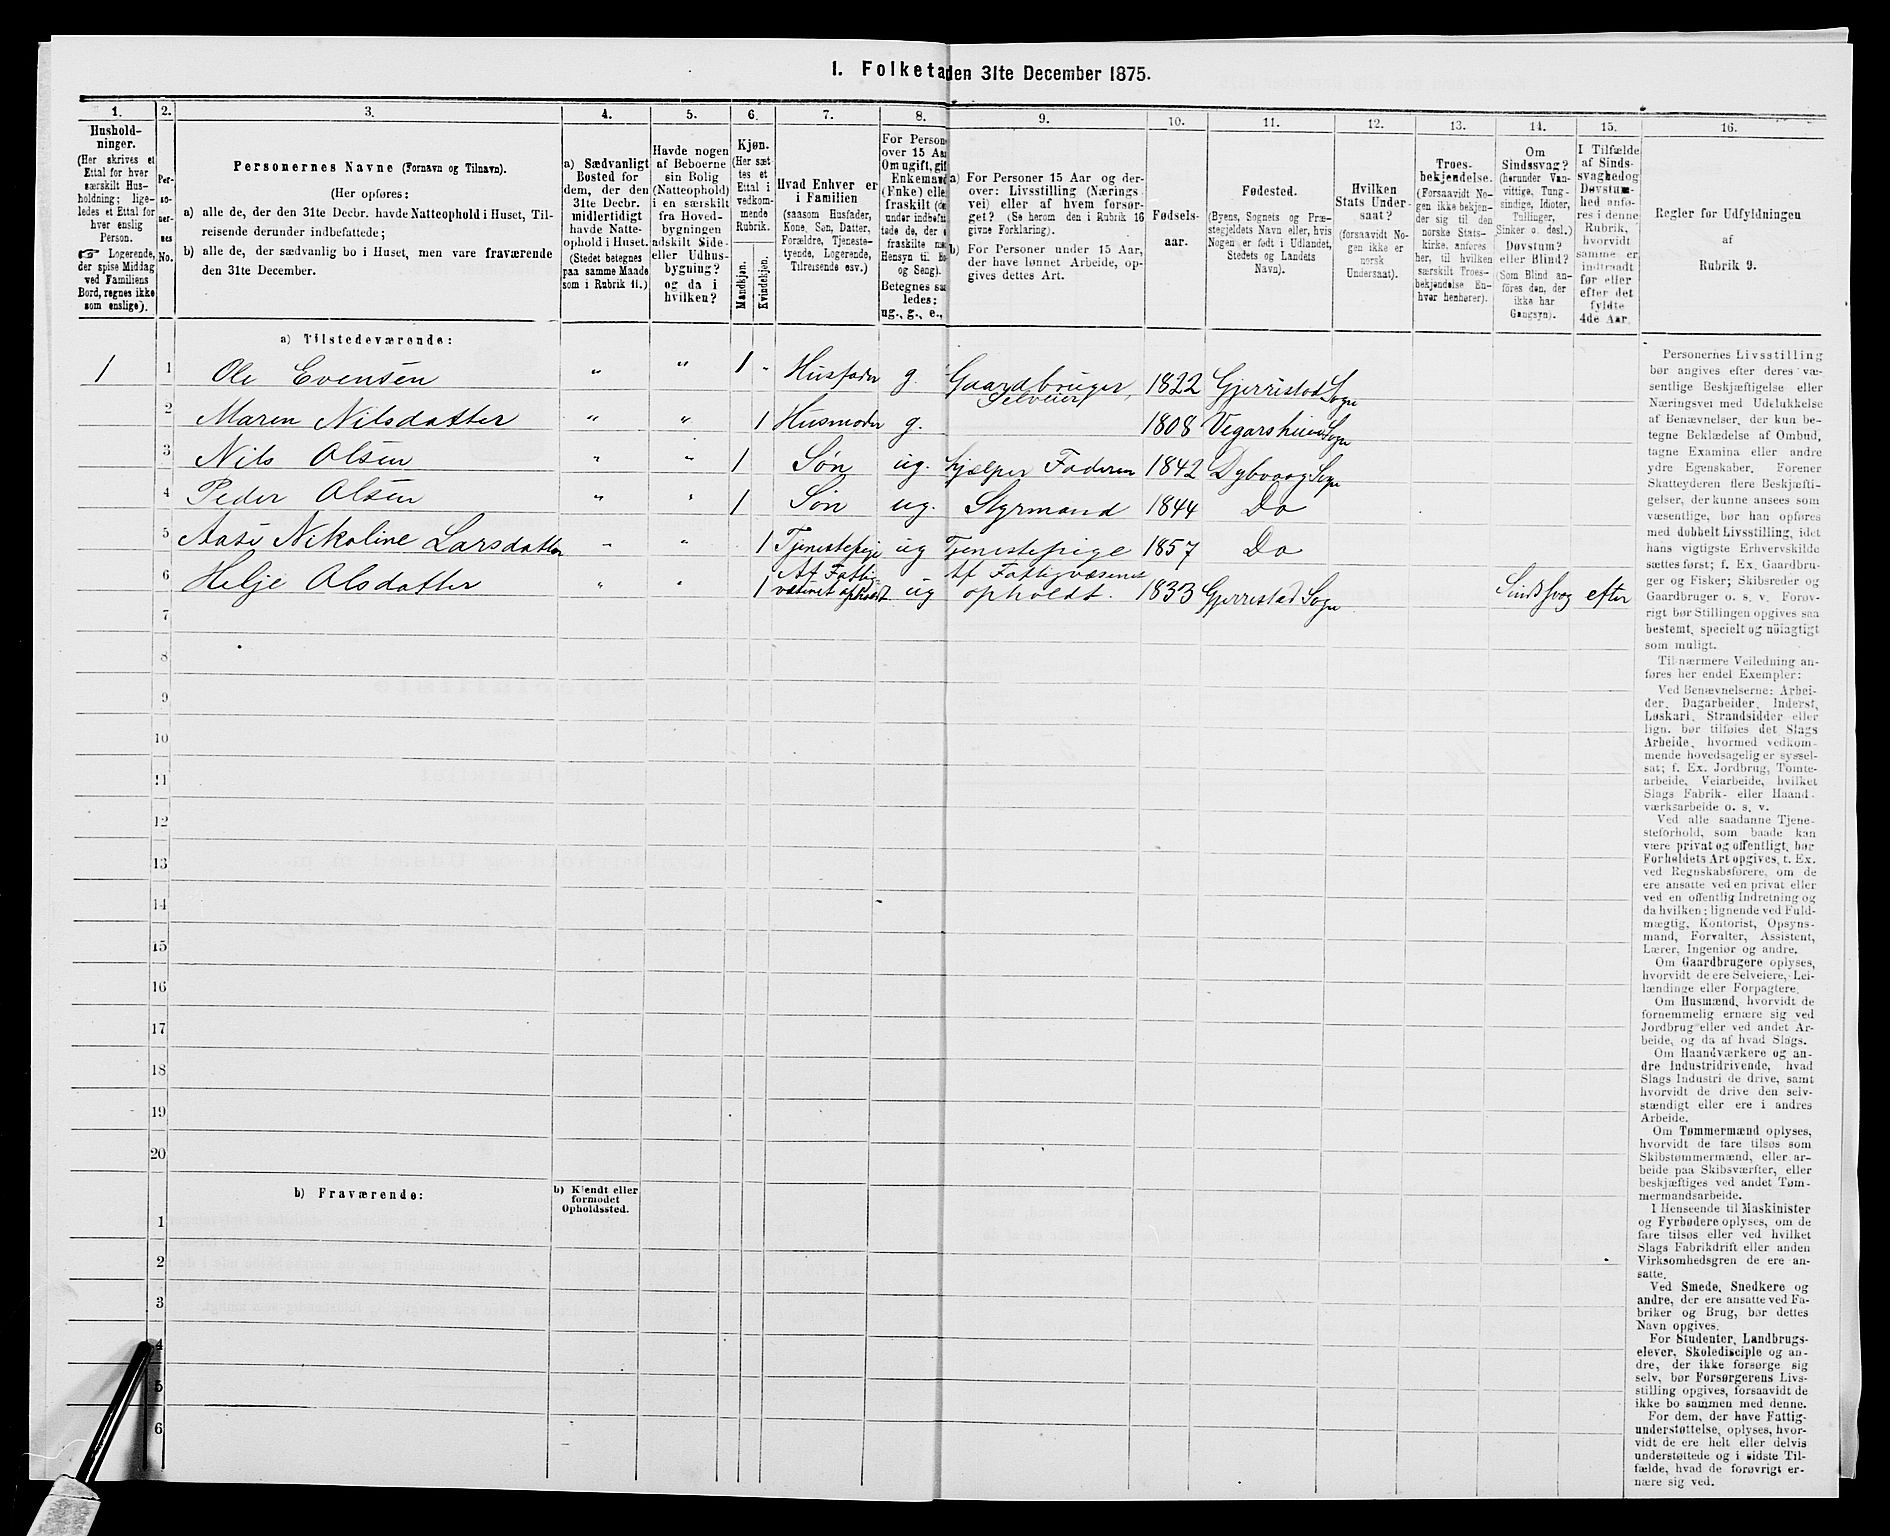 1. Folketa den 31te December 1875.
1.
Hushold-
ninger.
(Her skrives et
Ettal for hver
særskilt Hus-
holdning; lige-
ledes et Ettal for
hver enslig
Person.
☞ Logerende,
der spise Middag
ved Familiens
Bord, regnes ikke
som enslige).
2.
Per-
so-
ner-
nes
No.
3.
Personernes Navne (Fornavn og Tilnavn).
(Her opføres:
a) alle de, der den 31te Decbr. havde Natteophold i Huset, Til-
reisende derunder indbefattede;
b) alle de, der sædvanlig bo i Huset, men vare fraværende
den 31te December.
4.
a) Sædvanligt
Bosted for
dem, der den
31te Decbr.
midlertidigt
havde Natte-
ophold i Huset.
(Stedet betegnes
paa samme Maade
som i Rubrik 11.)
5.
Havde nogen
af Beboerne
sin Bolig
(Natteophold)
i en særskilt
fra Hoved-
bygningen
adskilt Side-
eller Udhus-
bygning?
og da i
hvilken?
6.
Kjøn.
(Her sæt
tes et
Ettal i
vedkom-
mende
Rubrik.
Mandkjøn.
Kvindekjøn.
7.
Hvad Enhver er
i Familien
(saasom Husfader,
Kone, Søn, Datter,
Forældre, Tjeneste-
tyende, Logerende,
Tilreisende osv.)
8.
For Person
over 15 Aa
Om ugift, gif
Enkemand
(Enke) elle
fraskilt (de
under indbefat
tede de, der e
fraskilte m
Hensyn til Bo
og Seng).
Betegnes saa
ledes:
ug., g., e.,
9.
a) For Personer 15 Aar og der-
over: Livsstilling (Nærings
vei) eller af hvem forsør-
get? (Se herom den i Rubrik 16
givne Forklaring).
b) For Personer under 15 Aar,
der have lønnet Arbeide, op-
gives dettes Art.
10.
Fødsels-
aar.
11.
Fødested.
(Byens, Sognets og Præ-
stegjeldets Navn eller, hvis
Nogen er født i Udlandet,
Stedets og Landets
Navn).
12.
Hvilken
Stats Under-
saat?
(forsaavidt No-
gen ikke er
norsk
Undersaat).
13.
Troes-
bekjendelse.
(Forsaavidt No-
gen ikke bekjen-
der sig til den
norske Stats-
kirke, anføres
her, til hvilken
særskilt Troes-
bekjendelse En-
hver henhører).
14.
Om
Sindssvag?
(herunder Van-
vittige, Tung-
sindige, Idioter,
Tullinger,
Sinker o. desl.)
Døvstum?
eller Blind?
(Som Blind an-
føres den, der
ikke har
Gangsyn).
15.
I Tilfælde
af Sinds-
svaghed og
Døvstum-
hed anfø-
res i denne
Rubrik,
hvorvidt
samme er
indtraadt
før eller
efter det
fyldte
4de Aar.
16.
Regler for Udfyldningen
af
Rubrik 9.
a) Tilstedeværende:
1 1 Ole Evensen " " 1 " Husfader g. Gaardbruger, Selveier 1822 Gjerrestad Sogn
2 Maren Nilsdatter " " 1 Husmoder g. 1808 Vegarsheien Sogn
3 Nils Olsen " " 1 Søn ug. hjælper Faderen 1842 Dybvaag Sogn
4 Peder Olsen " " 1 Søn ug. Styrmand 1844 Do
5 Aase Nikoline Larsdatter " " 1 Tjenestepige ug Tjenestepige 1857 Do
6 Helje Olsdatter " " 1 Af Fattigvæsenet opholdt ug Af Fattigvæsenet opholdt. 1833 Gjerrestad Sogn Sindssvag efter
7
8
9
10
11
12
13
14
15
16
17
18
19
20
b) Fraværende:
b) Kjendt eller
formodet
Opholdssted.
1
2
3
4
5
6
Personernes Livsstilling
bør angives efter deres væ-
sentlige Beskjæftigelse eller
Næringsvei med Udelukkelse
af Benævnelser, der kun be-
tegne Beklædelse af Ombud,
tagne Examina eller andre
ydre Egenskaber. Forener
Skatteyderen flere Beskjæfti-
gelser, der kunne ansees som
væsentlige, bør han opføres
med dobbelt Livsstilling, idet
hans vigtigste Erhvervskilde
sættes først; f. Ex. Gaardbru-
ger og Fisker; Skibsreder og
Gaardbruger o. s. v. Forøv-
rigt bør Stillingen opgives saa
bestemt, specielt og nöiagtigt
som muligt.
Til nærmere Veiledning an-
føres her endel Exempler:
Ved Benævnelserne: Arbei-
der, Dagarbeider, Inderst,
Løskarl, Strandsidder eller
lign. bør tilføies det Slags
Arbeide, hvormed vedkom-
mende hovedsagelig er syssel-
sat; f. Ex. Jordbrug, Tomte-
arbeide, Veiarbeide, hvilket
Slags Fabrik- eller Haand-
værksarbeide o. s. v.
Ved alle saadanne Tjene-
steforhold, som baade kan
være privat og offentligt, bør
Forholdets Art opgives, t. Ex.
ved Regnskabsførere, om de
ere ansatte ved en privat eller
ved en offentlig Indretning og
da hvilken; lignende ved Fuld-
mægtig, Kontorist, Opsyns-
mand, Forvalter, Assistent,
Lærer, Ingeniør og andre.
Om Gaardbrugere oplyses,
hvorvidt de ere Selveiere, Lei-
lændinge eller Forpagtere.
Om Husmænd, hvorvidt de
fornemmelig ernære sig ved
Jordbrug eller ved andet Ar-
beide, og da af hvad Slags.
Om Haandværkere og an-
dre Industridrivende, hvad
Slags Industri de drive, samt
hvorvidt de drive den selv-
stændigt eller ere i andres
Arbeide.
Om Tømmermænd oplyses,
hvorvidt de fare tilsøs som
Skibstømmermænd, eller ar-
beide paa Skibsværfter, eller
beskjæftiges ved andet Tøm-
mermandsarbeide.
I Henseende til Maskinister
og Fyrbødere oplyses, om de
fare tilsøs eller ved hvilket
Slags Fabrikdrift eller anden
Virksomhedsgren de ere an-
satte.
Ved Smede, Snedkere og
andre, der ere ansatte ved Fa-
briker og Brug, bør dettes
Navn opgives.
For Studenter, Landbrugs-
elever, Skoledisciple og an-
dre, der ikke forsørge sig
selv, bør Forsørgerens Livs-
stilling opgives, forsaavidt de
ikke bo sammen med denne.
For dem, der have Fattig-
understøttelse, oplyses, hvor-
vidt de ere helt eller delvis
understøttede og i sidste Til-
fælde, hvad de forøvrigt er-
nære sig ved.